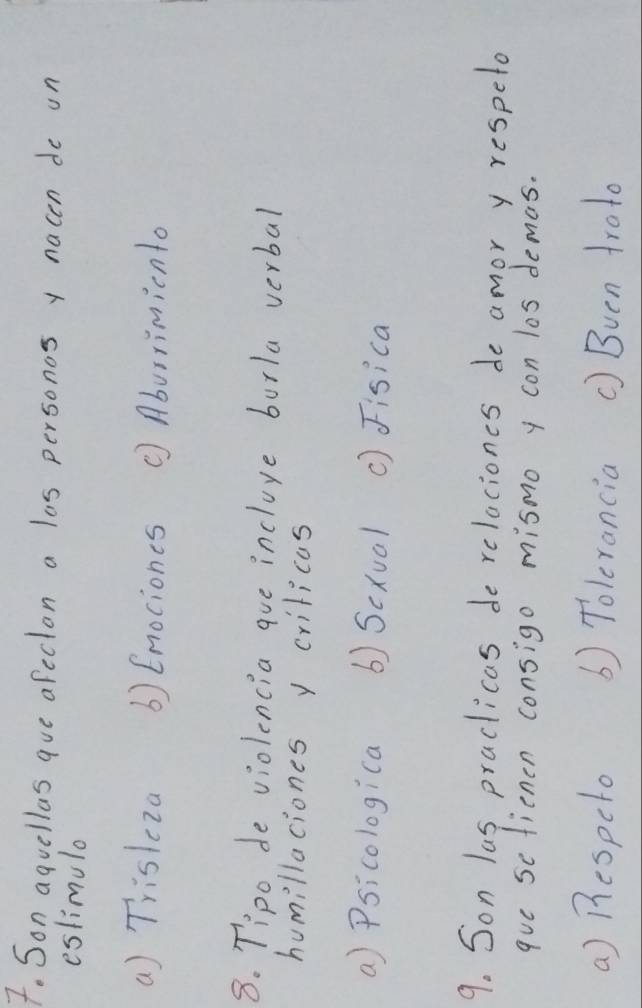 7. Son aquellas que afectan a las personas y nacen de un
estimulo
a) Tristeza b) Emociones c) Aburrimiento
8. Tipo de violencia que incluye burla verbal
humillaciones y criticas
a) Psicologica b) Sexual c) Fisica
9. Son las practicas de relaciones de amor y respeto
que se tienen consigo mismo y con los demas.
a) Respeto b) Tolerancia c) Buen trato